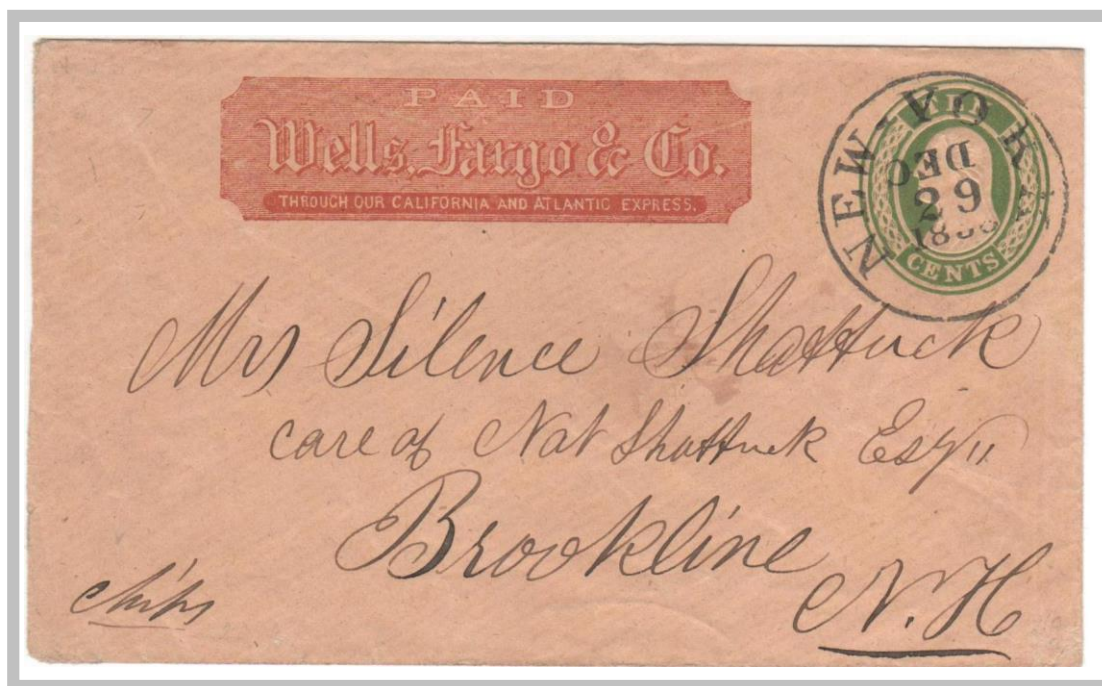 PAID
Wells, Fargo & Co.
THROUGH OUR CALIFORNIA AND ATLANTIC EXPRESS.
NEW-YORK
DEC
29
CENTS
Mrs Silence Shattuck
care of Nat Shattuck Esqr
Brookline
N.H